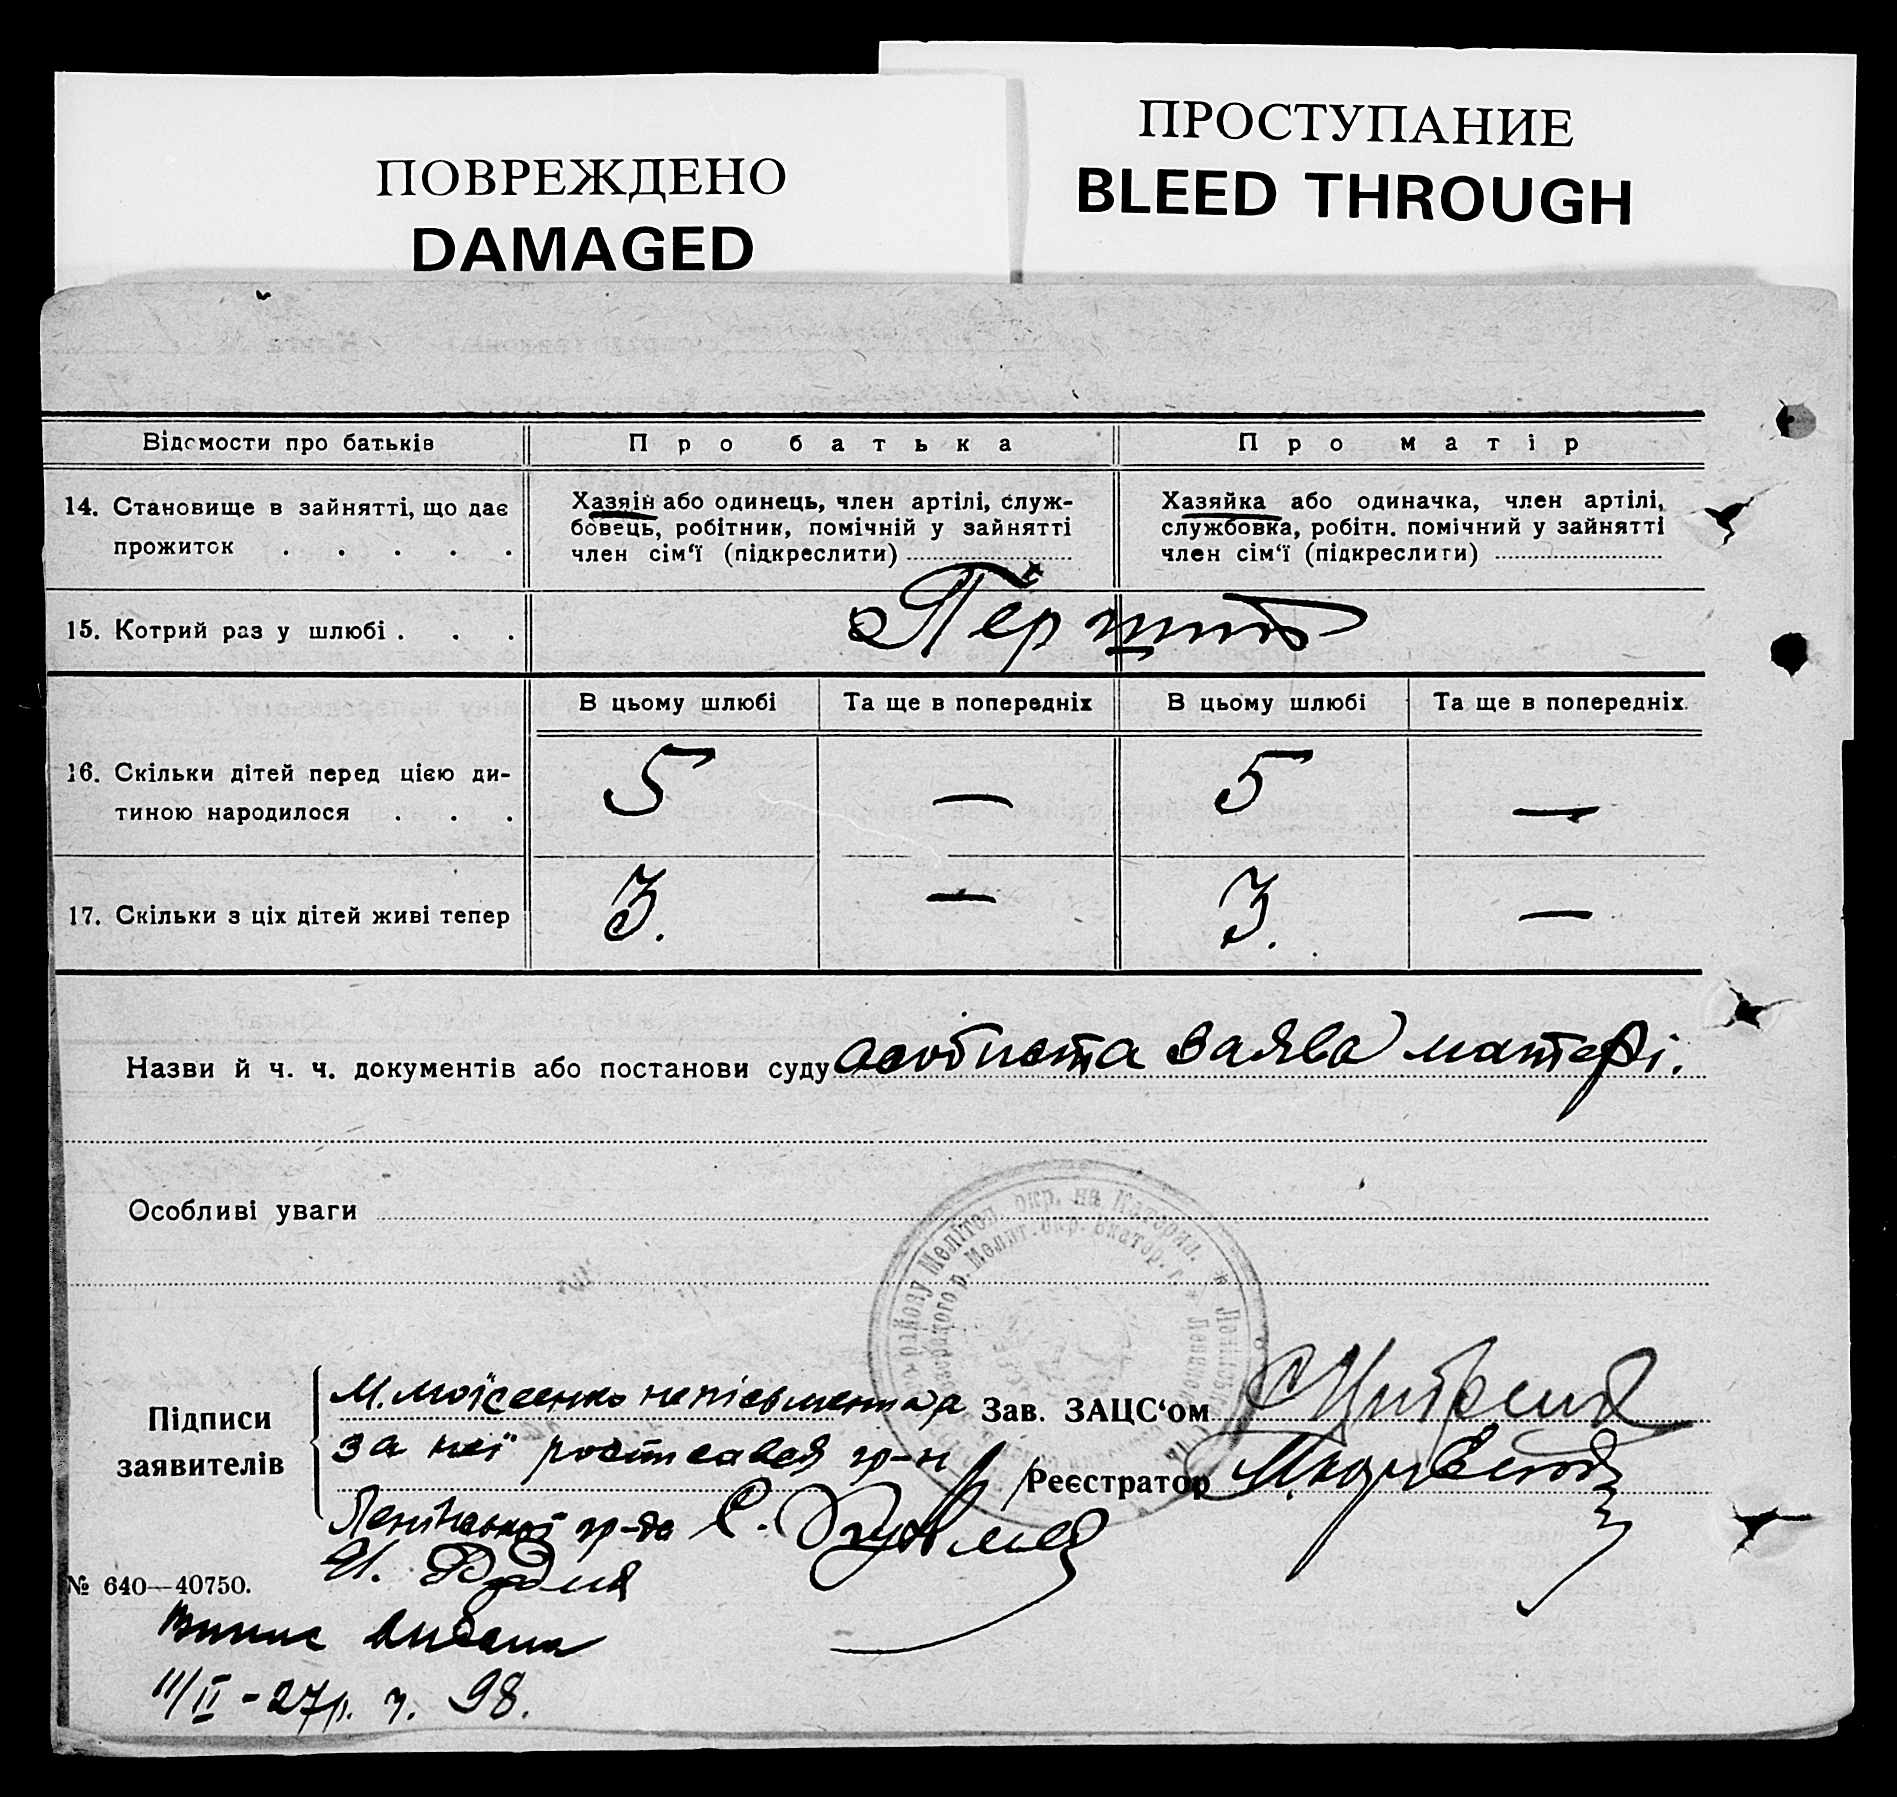 ПОВРЕЖДЕНО
DAMAGED
ПРОСТУПАНИЕ
BLEED THROUGH
Відомости про батьків
Про батька
Про матір
14. Становище в зайнятті, що дає
прожиток . . . . .
Хазяін або одинець, член артілі, служ-
бовець, робітник, помічній у зайнятті
член сім'ї (підкреслити)
Хазяйка або одиначка, член артілі,
службовка, робітн. помічний у зайнятті
член сім'ї (підкреслити)
15. Котрий раз у шлюбі . . .
В цьому шлюбі
Та ще в попередніх
В цьому шлюбі
Та ще в попередніх
16. Скільки дітей перед цією ди-
тиною народилося . . .
5
—
5
—
17. Скільки з ціх дітей живі тепер
3.
—
3.
—
Назви й ч. ч. документів або постанови суду особиста заява матері.
Особливі уваги
Підписи
заявителів
М. Моїсеенко неписьменна а
за неї росписався гр-н
Ленінської гр-да С.
Зав. ЗАЦС'ом
Реєстратор
№ 640—40750.
Випис видани
11/II - 27р. ч. 98.